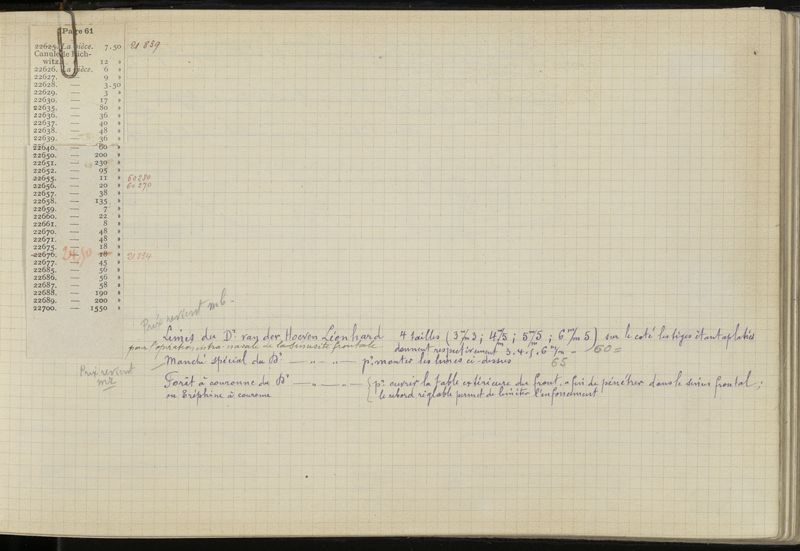 Page 61
22625. La pièce. 7.50 21 839
Canule de Rich-
witz. 12 »
22626. La pièce. 6 »
22627. — 9 »
22628. — 3.50
22629. — 3 »
22630. — 17 »
22635. — 80 »
22636. — 36 »
22637. — 40 »
22638. — 48 »
22639. — 36 »
22640. — 60 »
22650. — 200 »
22651. — 230 »
22652. — 95 »
22655. — 11 » 60280
22656. — 20 » 60270
22657. — 38 »
22658. — 135 »
22659. — 7 »
22660. — 22 »
22661. — 8 »
22670. — 48 »
22671. — 48 »
22675. — 18 »
22676. — 18 » 21834
22677. — 45 »
22685. — 56 »
22686. — 56 »
22687. — 58 »
22688. — 190 »
22689. — 200 »
22700. — 1550 »
Prix revient mb.
Limes du Dr van der Hoeven Léonhard 4 tailles (3 m/m 3; 4 m/m 5; 5 m/m 5; 6 m/m 5) sur le coté les tiges étant aplaties
pour l'opération intra-nasale de la sinusite frontale donnent respectivement 3.4.5.6 m/m — 60 =
Manche spécial du Dr — „ — „ — pr monter les limes ci-dessus 65
Prix revient
mz
Forêt à couronne du Dr — „ — „ — pr ouvrir la table extérieure du front, afin de pénétrer dans le sinus frontal;
ou Tréphine à couronne le rebord réglable permet de limiter l'enfoncement